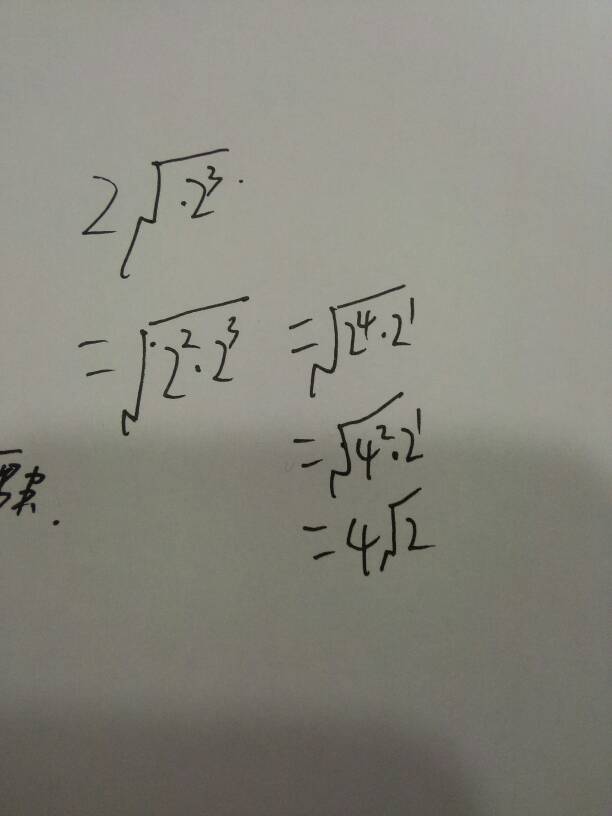 2√2³
=√2²·2³
=√2⁴·2¹
=√4²·2¹
=4√2